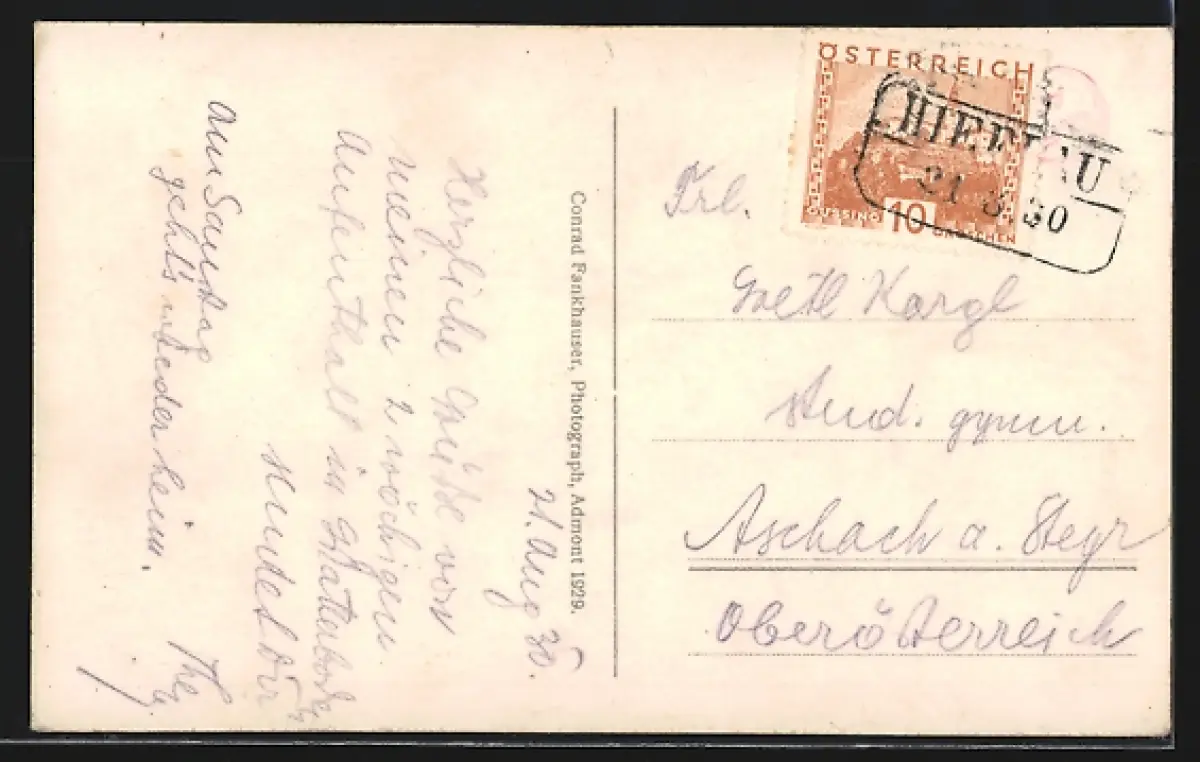 21. Aug 30.
Herzliche Grüße von
meinem 2 wöchigen
Aufenthalt in
Am Samstag
gehts wieder heim.
Conrad Fankhauser, Photograph, Admont 1929.
ÖSTERREICH
GÜSSING 10 GROSCHEN
HIEFLAU
21 8 30
Frl.
Gretl Kargl
stud. gymn.
Aschach a. Steyr
Oberösterreich